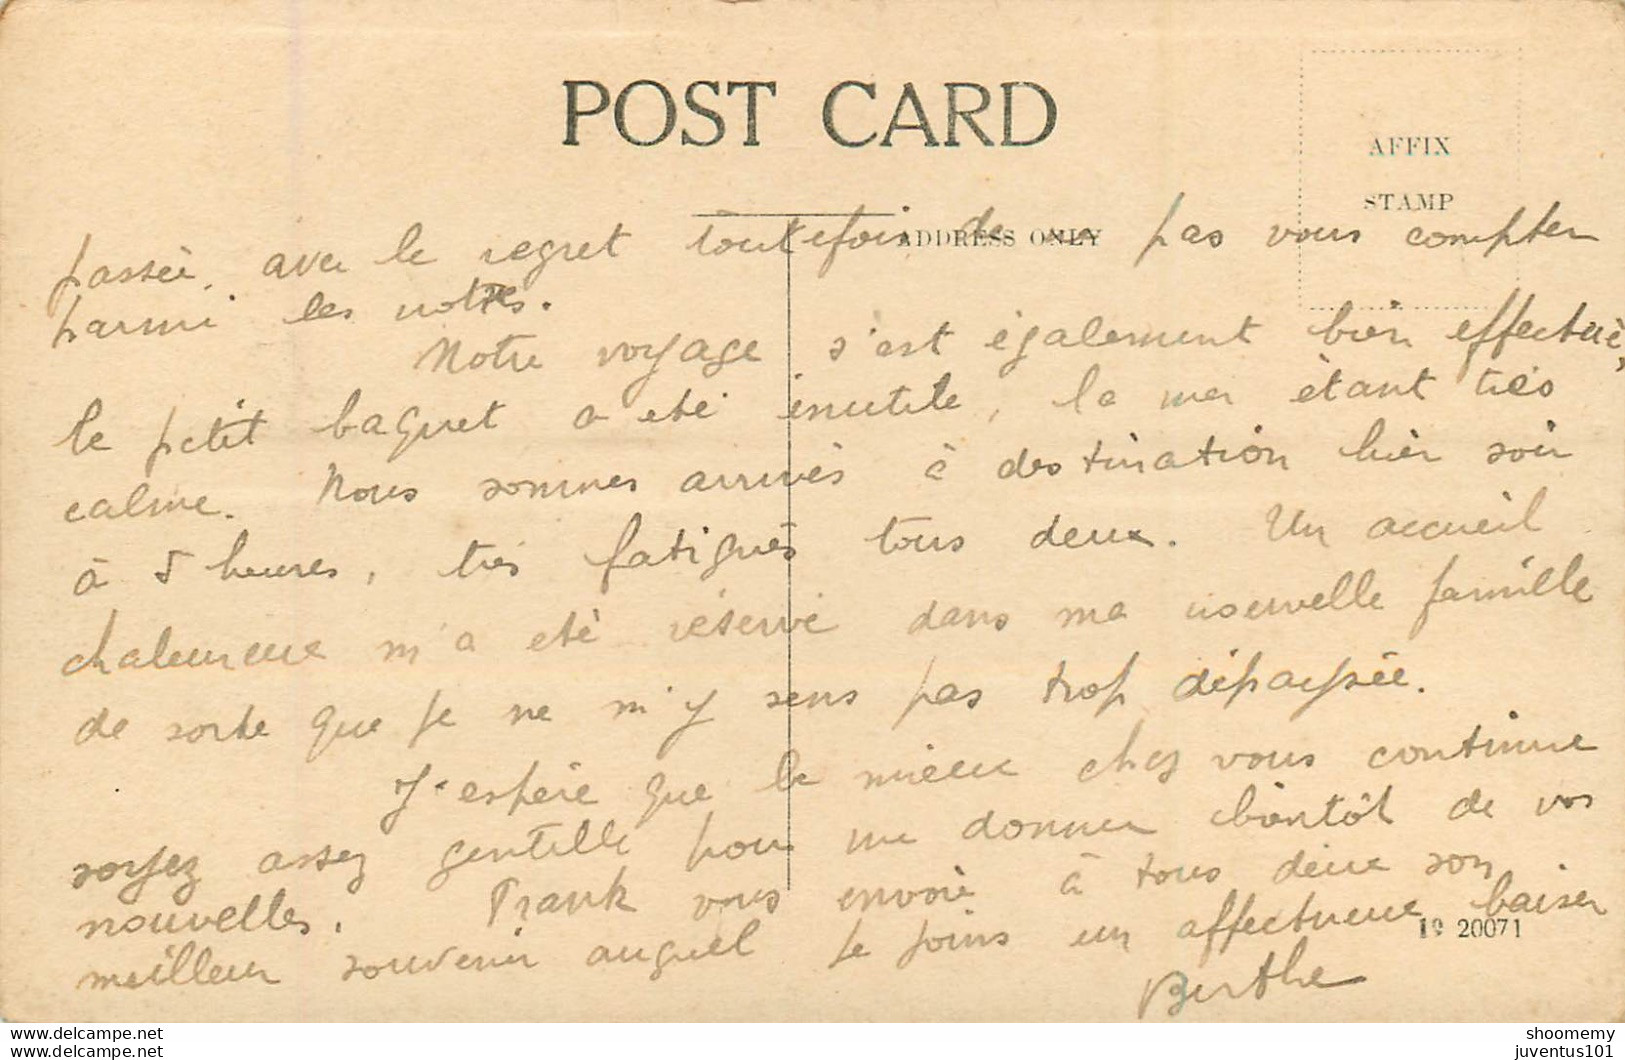 POST CARD
AFFIX
STAMP
ADDRESS ONLY
passée, avec le regret toutefois de ne pas vous compter
parmi les notres.
Notre voyage s'est également bien effectué,
le petit baquet a été inutile, la mer étant très
calme. Nous sommes arrivés à destination hier soir
à 5 heures, très fatigués tous deux. Un accueil
chaleureux m'a été réservé dans ma nouvelle famille
de sorte que je ne m'y sens pas trop dépaysée.
J'espère que le mieux chez vous continue
soyez assez gentille pour me donner bientôt de vos
nouvelles. Frank vous envoie à tous deux son
meilleur souvenir auquel je joins un affectueux baiser
19 20071
Berthe
www.delcampe.net
shoomemy
juventus101